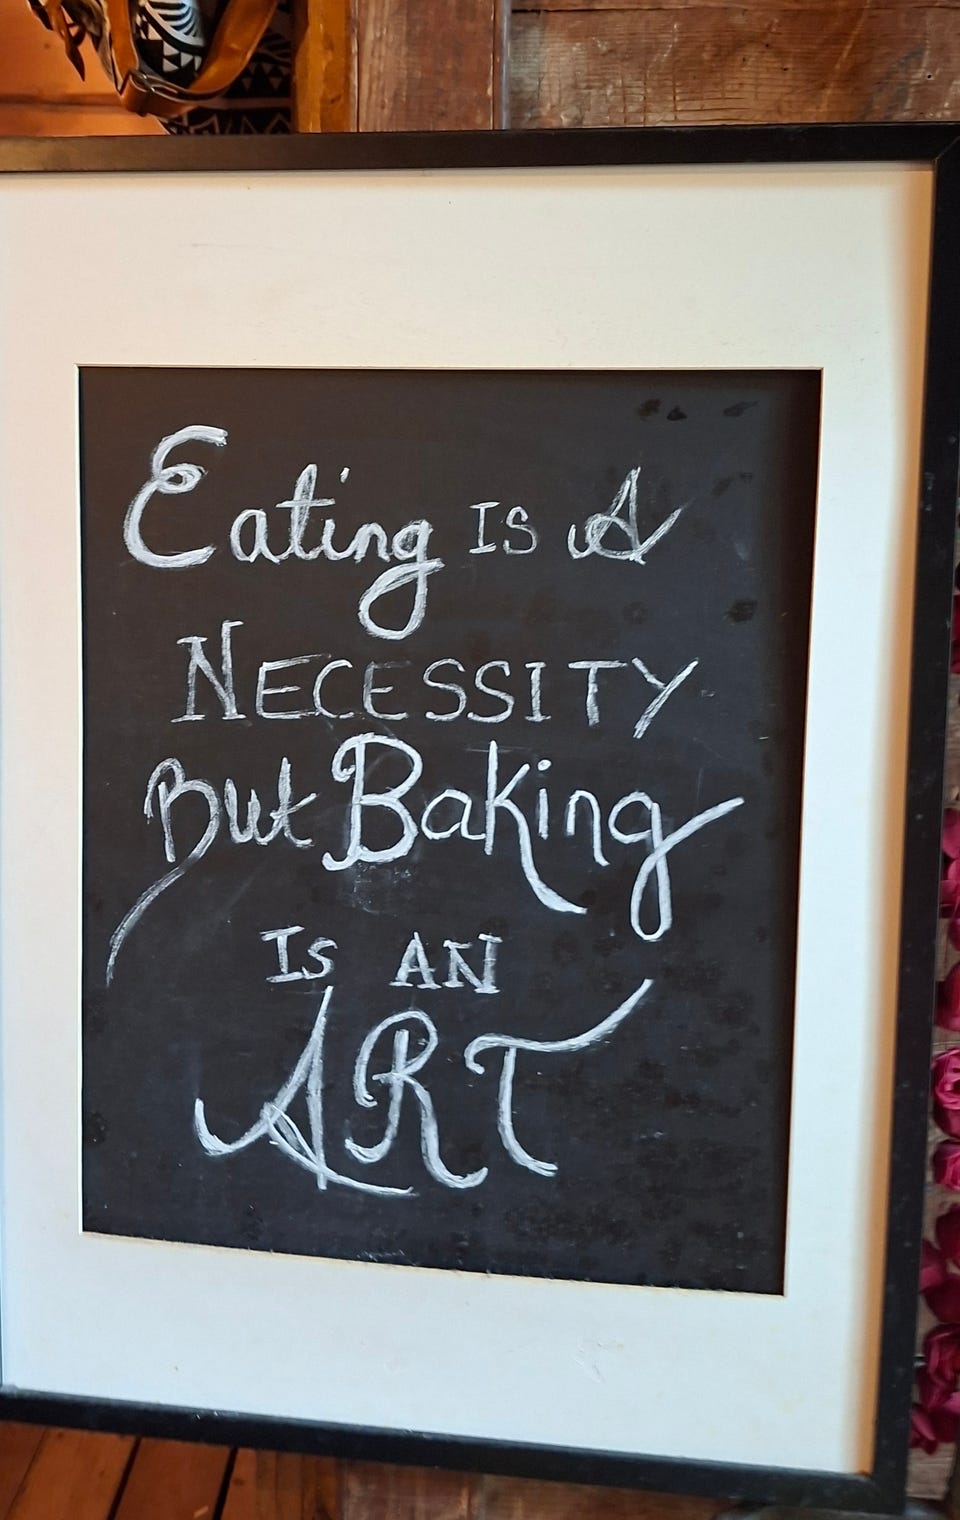 Eating IS A
NECESSITY
But Baking
IS AN
ART